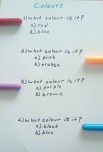 Colours
1) what colour is it?
a) red
b) blue
2) what colour is it?
a) pink
b) orange
3) what colour is it?
a) purple
b) brown
4) what colour is it?
a) black
b) blue